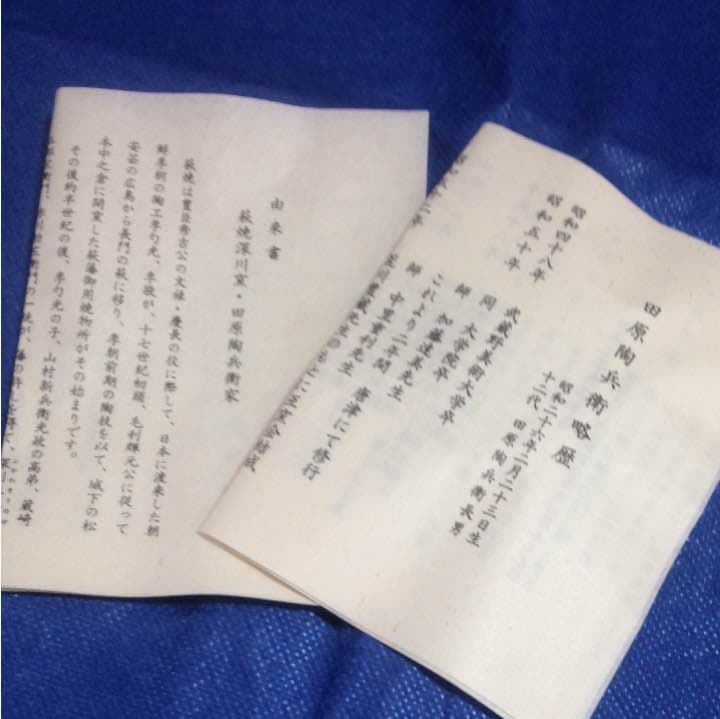 由来書
萩焼深川窯・田原陶兵衛家
萩焼は豊臣秀吉公の文禄・慶長の役に際して、日本に渡来した朝
鮮李朝の陶工李勺光、李敬が、十七世紀初頭、毛利輝元公に従って
安芸の広島から長門の萩に移り、李朝前期の陶技を以て、城下の松
本中之倉に開窯した萩藩御用焼物所がその始まりです。
その後約半世紀の後、李勺光の子、山村新兵衛光政の高弟、蔵崎
の一統が、藩の許しを得て、
田原陶兵衛略歴
昭和二十六年二月二十三日生
十二代 田原陶兵衛長男
昭和四十八年 武蔵野美術大学卒
昭和五十年 同 大学院卒
師 加藤達美先生
これより二年間 唐津にて修行
師 中里重利先生